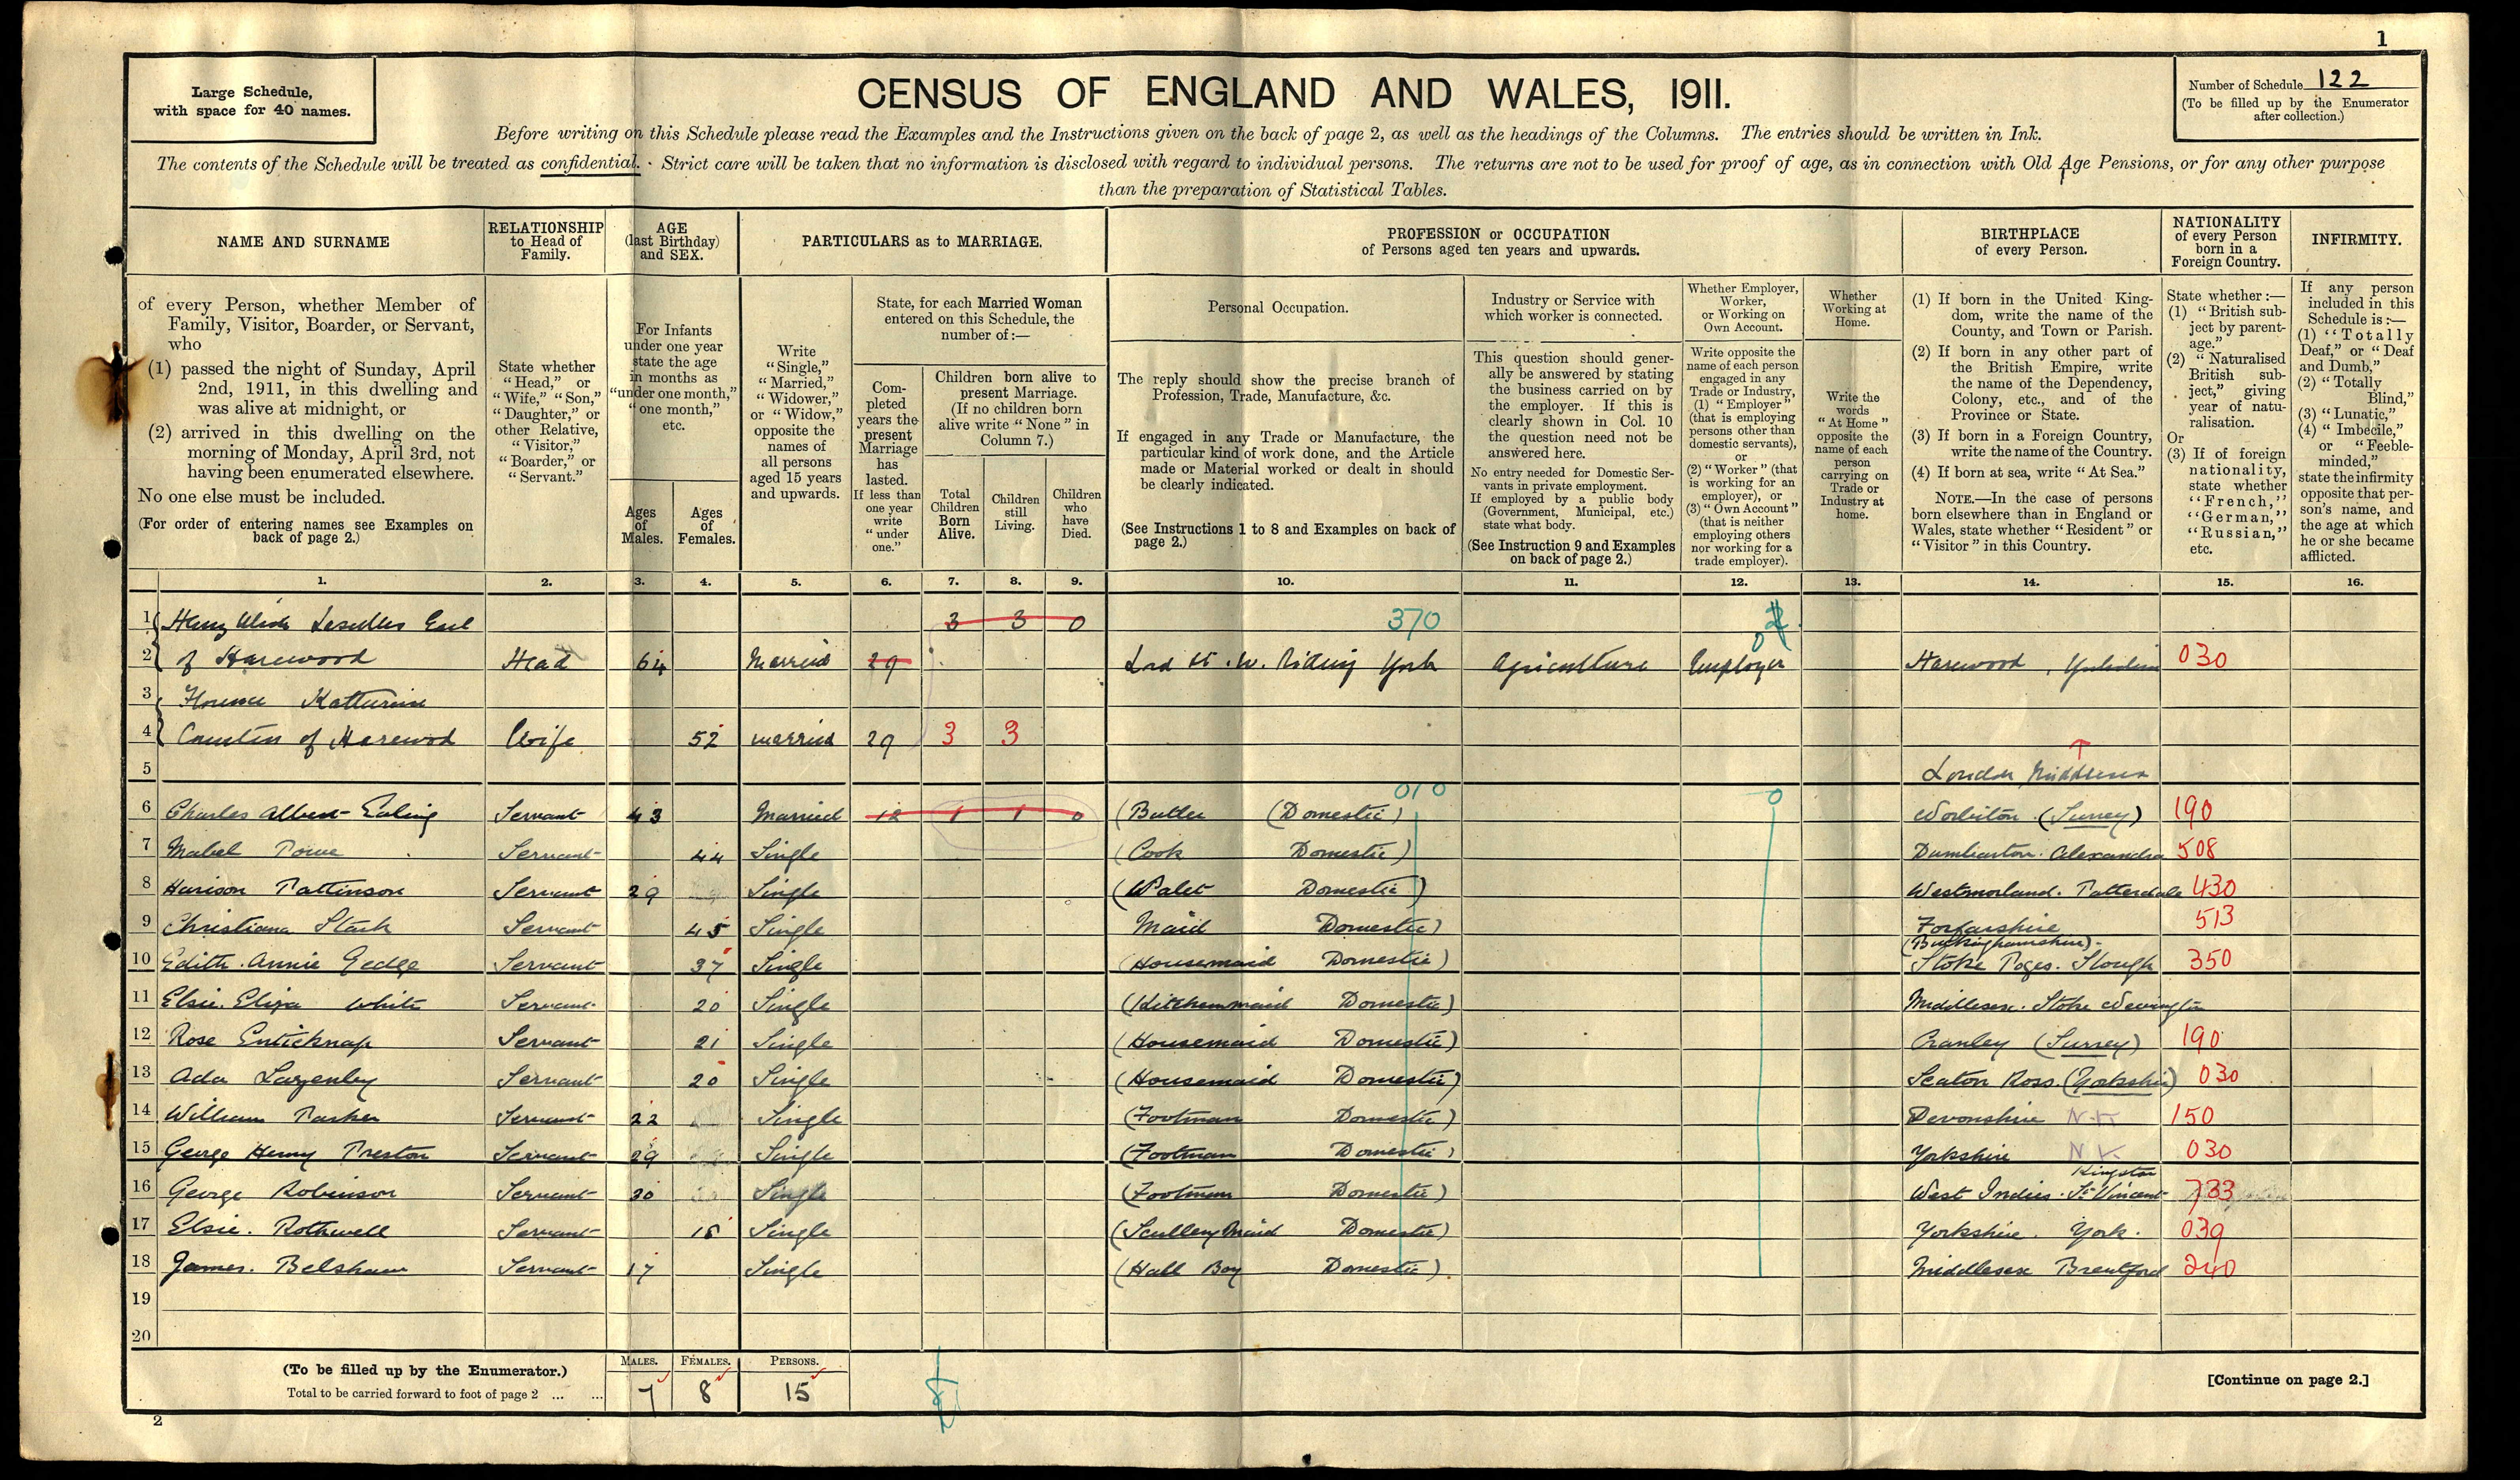 1
Large Schedule,
with space for 40 names.
CENSUS OF ENGLAND AND WALES, 1911.
Number of Schedule 122
(To be filled up by the Enumerator
after collection.)
Before writing on this Schedule please read the Examples and the Instructions given on the back of page 2, as well as the headings of the Columns. The entries should be written in Ink.
The contents of the Schedule will be treated as confidential. Strict care will be taken that no information is disclosed with regard to individual persons. The returns are not to be used for proof of age, as in connection with Old Age Pensions, or for any other purpose
than the preparation of Statistical Tables.
NAME AND SURNAME
of every Person, whether Member of
Family, Visitor, Boarder, or Servant,
who
(1) passed the night of Sunday, April
2nd, 1911, in this dwelling and
was alive at midnight, or
(2) arrived in this dwelling on the
morning of Monday, April 3rd, not
having been enumerated elsewhere.
No one else must be included.
(For order of entering names see Examples on
back of page 2.)
RELATIONSHIP
to Head of
Family.
State whether
"Head," or
"Wife," "Son,"
"Daughter," or
other Relative,
"Visitor,"
"Boarder," or
"Servant."
AGE
(last Birthday)
and SEX.
For Infants
under one year
state the age
in months as
"under one month,"
"one month,"
etc.
Ages
of
Males.
Ages
of
Females.
PARTICULARS as to MARRIAGE.
Write
"Single,"
"Married,"
"Widower,"
or "Widow,"
opposite the
names of
all persons
aged 15 years
and upwards.
State, for each Married Woman
entered on this Schedule, the
number of:—
Com-
pleted
years the
present
Marriage
has
lasted.
If less than
one year
write
"under
one."
Children born alive to
present Marriage.
(If no children born
alive write "None" in
Column 7.)
Total
Children
Born
Alive.
Children
still
Living.
Children
who
have
Died.
PROFESSION or OCCUPATION
of Persons aged ten years and upwards.
Personal Occupation.
The reply should show the precise branch of
Profession, Trade, Manufacture, &c.
If engaged in any Trade or Manufacture, the
particular kind of work done, and the Article
made or Material worked or dealt in should
be clearly indicated.
(See Instructions 1 to 8 and Examples on back of
page 2.)
Industry or Service with
which worker is connected.
This question should gener-
ally be answered by stating
the business carried on by
the employer. If this is
clearly shown in Col. 10
the question need not be
answered here.
No entry needed for Domestic Ser-
vants in private employment.
If employed by a public body
(Government, Municipal, etc.)
state what body.
(See Instruction 9 and Examples
on back of page 2.)
Whether Employer,
Worker,
or Working on
Own Account.
Write opposite the
name of each person
engaged in any
Trade or Industry,
(1) "Employer"
(that is employing
persons other than
domestic servants),
or
(2) "Worker" (that
is working for an
employer), or
(3) "Own Account"
(that is neither
employing others
nor working for a
trade employer).
Whether
Working at
Home.
Write the
words
"At Home"
opposite the
name of each
person
carrying on
Trade or
Industry at
home.
BIRTHPLACE
of every Person.
(1) If born in the United King-
dom, write the name of the
County, and Town or Parish.
(2) If born in any other part of
the British Empire, write
the name of the Dependency,
Colony, etc., and of the
Province or State.
(3) If born in a Foreign Country,
write the name of the Country.
(4) If born at sea, write "At Sea."
NOTE.—In the case of persons
born elsewhere than in England or
Wales, state whether "Resident" or
"Visitor" in this Country.
NATIONALITY
of every Person
born in a
Foreign Country.
State whether:—
(1) "British sub-
ject by parent-
age."
(2) "Naturalised
British sub-
ject," giving
year of natu-
ralisation.
Or
(3) If of foreign
nationality,
state whether
"French,"
"German,"
"Russian,"
etc.
INFIRMITY.
If any person
included in this
Schedule is:—
(1) "Totally
Deaf," or "Deaf
and Dumb,"
(2) "Totally
Blind,"
(3) "Lunatic,"
(4) "Imbecile,"
or "Feeble-
minded,"
state the infirmity
opposite that per-
son's name, and
the age at which
he or she became
afflicted.
1. 2. 3. 4. 5. 6. 7. 8. 9. 10. 11. 12. 13. 14. 15. 16.
1 Henry Ulick Lascelles Earl 3 3 0 370
2 of Harewood Head 64 Married 29 Lord Lt. W. Riding York Agriculture Employer Harewood, Yorkshire 030
3 Florence Katherine
4 Countess of Harewood Wife 52 married 29 3 3
5 London Middlesex
6 Charles Albert Ealing Servant 43 Married 12 1 1 0 (Butler (Domestic) 010 0 (Surrey) 190
7 Mabel Servant 44 Single (Cook Domestic) Dumbarton. Alexandra 508
8 Harison Pattinson Servant 29 Single (Valet Domestic) Westmorland. Patterdale 430
9 Christiana Stark Servant 45 Single Maid Domestic) Forfarshire 513
(Buckinghamshire)
10 Edith. Annie Gedge Servant 37 Single (Housemaid Domestic) Stoke Poges. Slough 350
11 Elsie. Eliza White Servant 20 Single (Kitchenmaid Domestic) Middlesex. Stoke Newington
12 Rose Enticknap Servant 21 Single (Housemaid Domestic) Cranley (Surrey) 190
13 Ada Lazenby Servant 20 Single (Housemaid Domestic) Seaton Ross. (Yorkshire) 030
14 William Parker Servant 22 Single (Footman Domestic) Devonshire N.K 150
15 George Henry Preston Servant 29 Single (Footman Domestic) Yorkshire N K. 030
Kingston
16 George Robinson Servant 20 Single (Footman Domestic) West Indies. St Vincent 733
17 Elsie. Rothwell Servant 18 Single (Scullery Maid Domestic) Yorkshire. York. 039
18 James. Belshaw Servant 17 Single (Hall Boy Domestic) Middlesex Brentford 240
19
20
(To be filled up by the Enumerator.)
Total to be carried forward to foot of page 2 ... ...
MALES. FEMALES. PERSONS.
7 8 15
[Continue on page 2.]
2